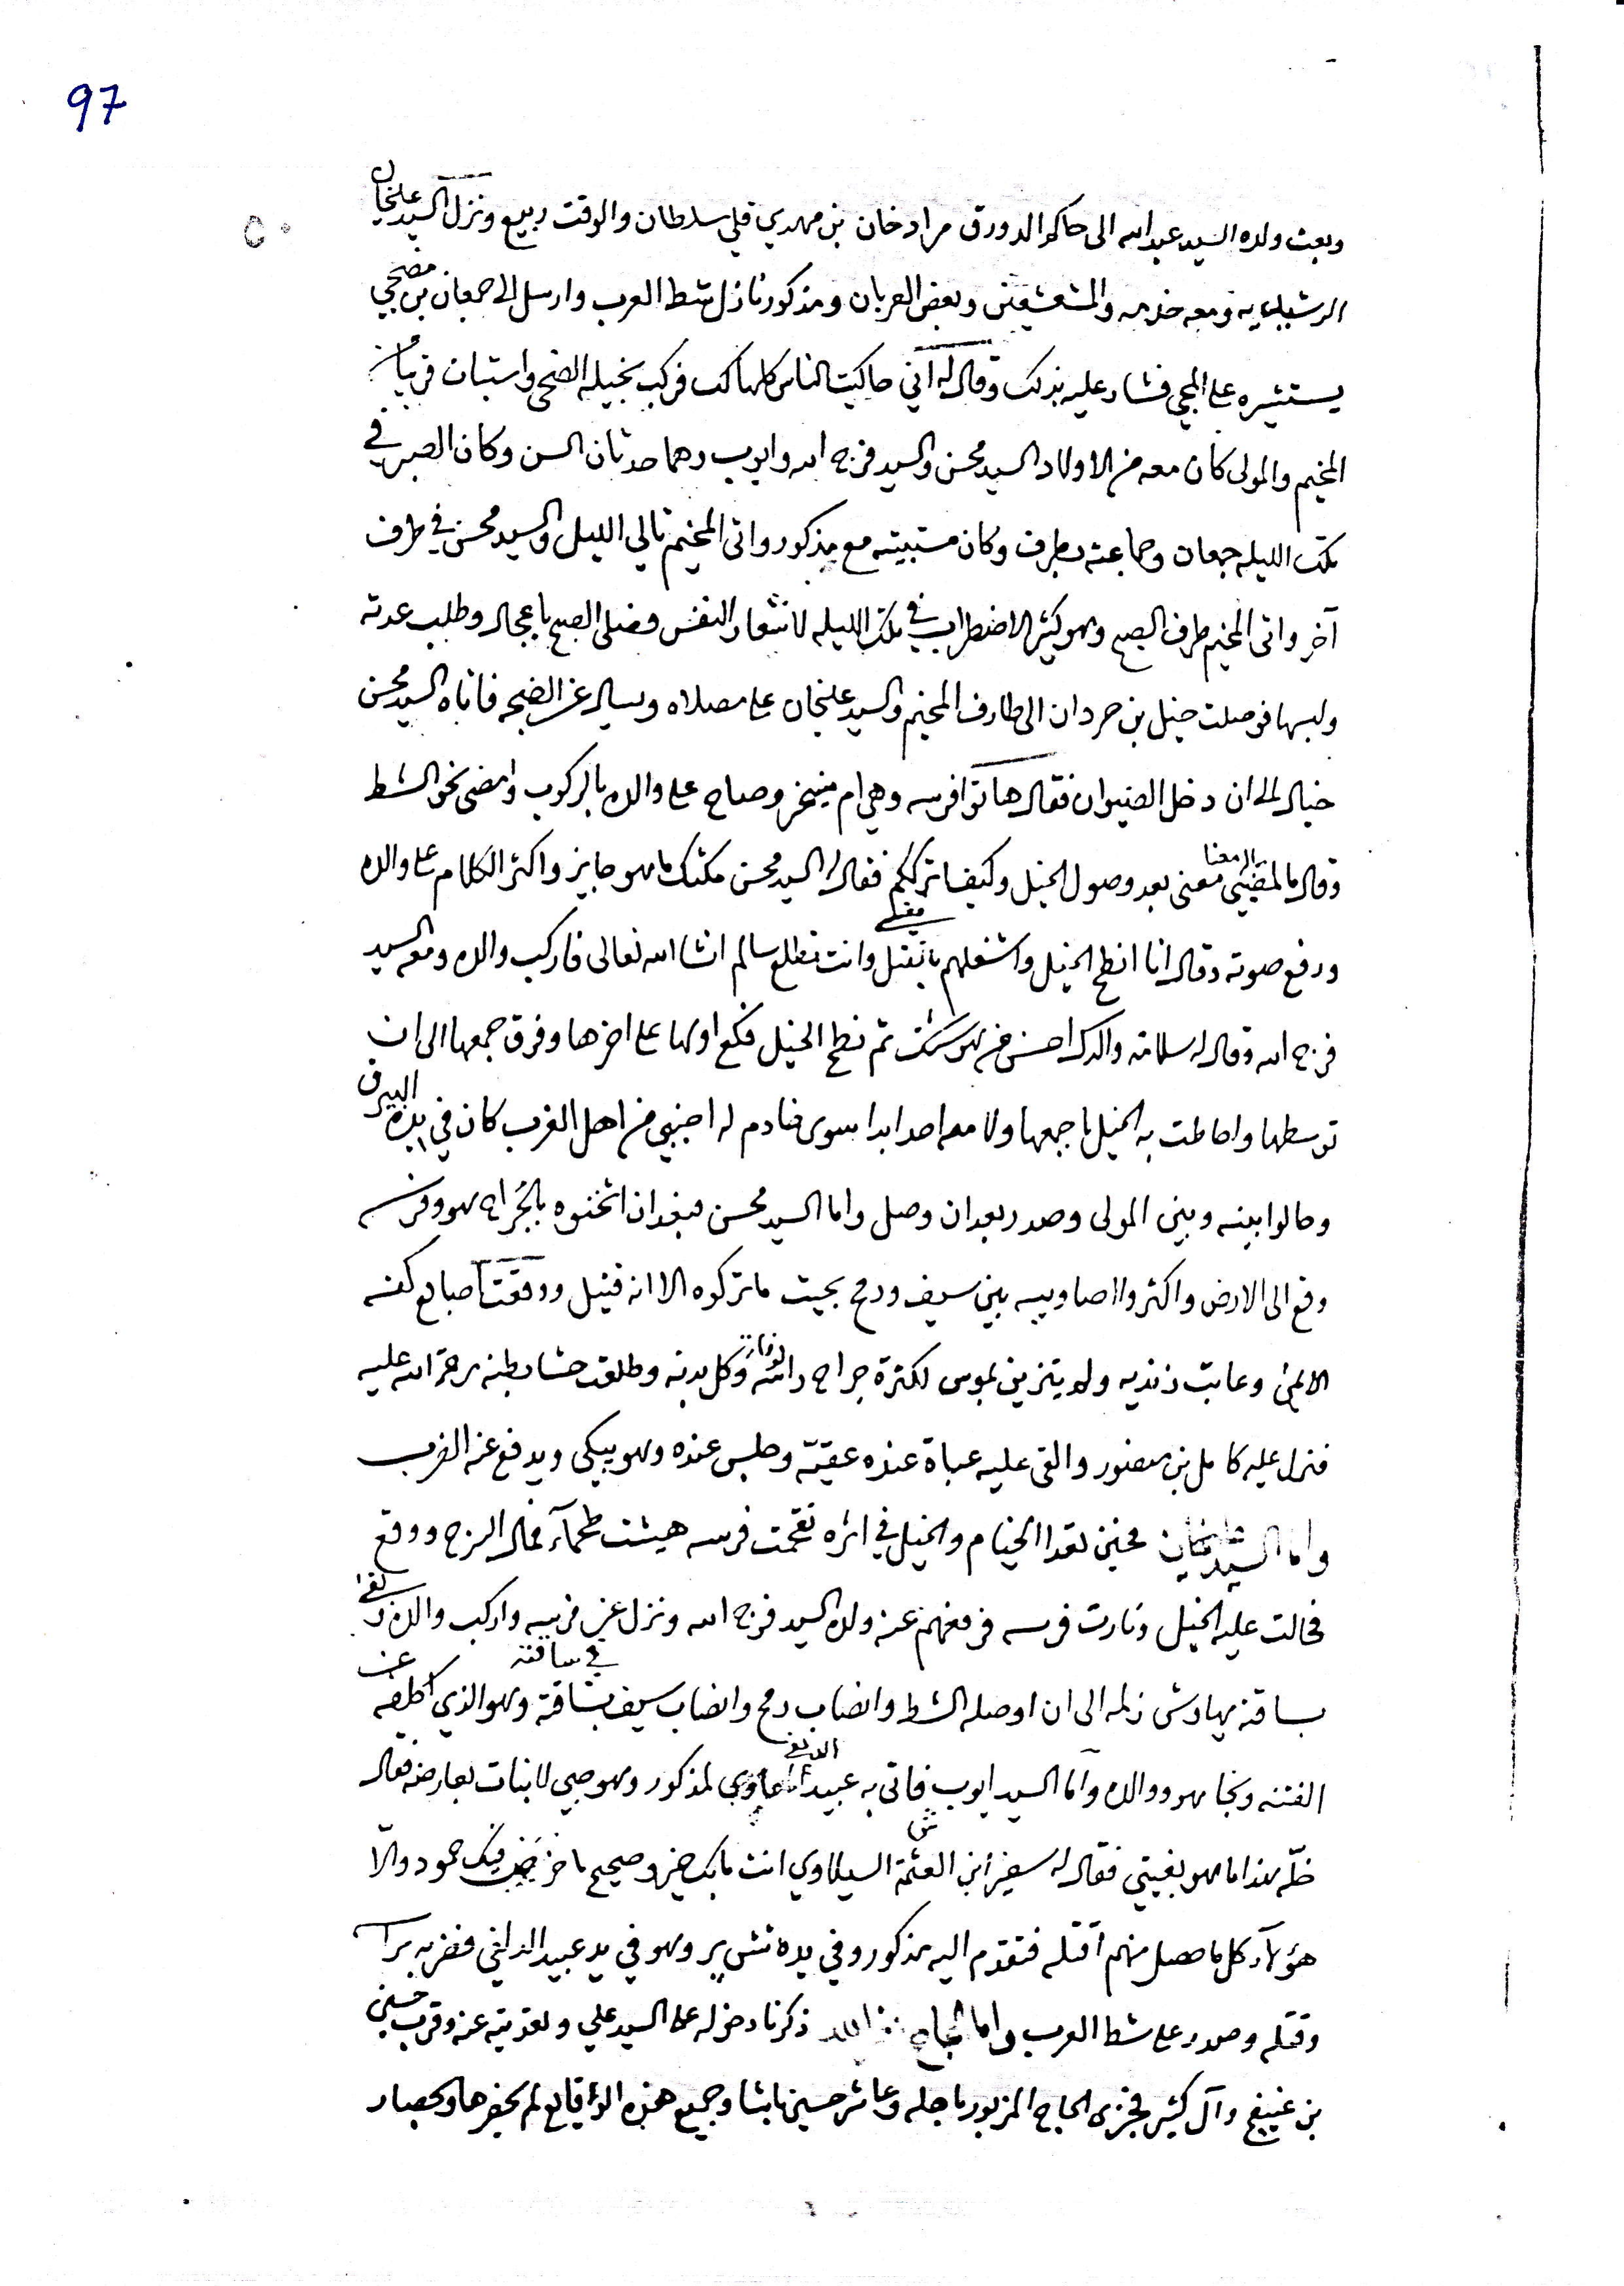 97
وبعث ولده السيد عبدالله الى حاكم الدورق مراد خان بن مهدي قلي سلطان والوقت ربيع ونزل السيد عليخان
ومعه خدمه والمشعشعين وبعض العربان ومذكور نازل شط العرب وارسل الى جمعان بن مضحي
يستشيره على المجي فشار عليه بذلك وقال له اني حاكيت الناس كلها لك فركب بخيله الضحى واستبان قريبا من
المخيم والمولى كان معه من الاولاد السيد محسن والسيد فرج الله وايوب وهما حدثان السن وكان الصبر في
تلك الليله جمعان وجماعته بطرف وكان مستبيته مع مذكور واتى المخيم تالي الليل والسيد محسن في طرف
آخر واتى المخيم طرف الصبح وهو كثير الاضطراب في تلك الليله لانشعار النفس فصلى الصبح باعجال وطلب عدته
ولبسها فوصلت خيل بن حردان الى طارف المخيم والسيد عليخان على مصلاه وسال عن الضجه فاتاه السيد محسن
خيال الى ان دخل الصيوان فقال هاتوا فرسه وهي ام منيخر وصاح على والده بالركوب وامضى نحو الشط
وقال ما لمضيي معنى بعد وصول الخيل وكيف اترككم فقال السيد محسن مكثك ما هو جايز واكثر الكلام على والده
ورفع صوته وقال انا انطح الخيل واشغلهم بقتلي وانت تطلع سالم انشا الله تعالى فاركب والده ومعه السيد
فرج الله وقال له سلامة والدك احسن من هوشتك ثم نطح الخيل فكع اولها على اخرها وفرق جمعها الى ان
توسطها واحاطت به الخيل باجمعها ولا معه احد ابدا سوى خادم له اجنبي من اهل الغرب كان في يده البيرق
وحالوا بينه وبين المولى وصدر بعد ان وصل واما السيد محسن فبعد ان اثخنوه بالجراح هو وفرسه
وقع الى الارض واكثروا اصاويبه بين سيف ورمح بحيث ما تركوه الا انه قتيل ووقعت اصابع كفه
الايمن وعابت زنديه ولم يتزين بموس لكثرة جراح راسه وكل بدنه وطلعت حشا بطنه رحمة الله عليه
فنزل عليه كامل بن منصور والقى عليه عباة عنده عقيّة وجلس عنده وهو يبكي ويدفع عنه الضرب
واما السيد عليخان فحين تعدا الخيام والخيل في اثره تقحمت فرسه هيشت طحماء فمال السرج ووقع
فحالت عليه الخيل وثارت فرسه فرفعهم عنه ولده السيد فرج الله ونزل عن فرسه واركب والده
بساقته يهاوش زلمه الى ان اوصله الشط وانصاب رمح وانصاب سيف بساقه وهو الذي اطلعه عن
الفتنه ونجا هو ووالده واما السيد ايوب فاتى به عبيد لمذكور وهو صبي لا بنات بعارضه فقال
خلّه هذا ما هو بغيتي فقال له سفير ابن العثمة السيلاوي انت ما بك خير وصحيح ما خرخش فيك حمود والّا
هؤلاء كل ما حصل منهم اقتله فتقدم اليه مذكور وفي يده نشير وهو في يد عبيد فضربه براسه
وقتله وصدر على شط العرب واما الحاج ذكرنا دخوله على السيد علي وتعزيته عنه وقرب حسين
بن غنيفج وآل كثير فجزى الحاج المزبور باجله وعاشر حسين باشا وجميع هذه الوقايع لم يحضرها وحصار